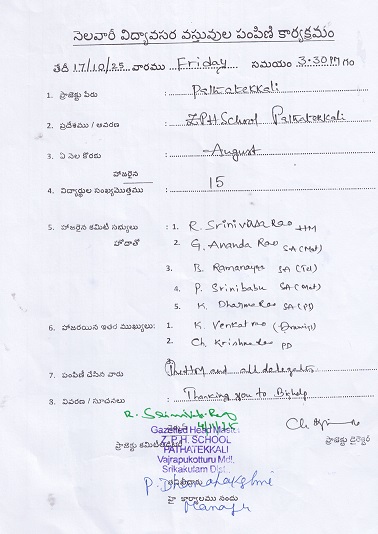 నెలవారీ విద్యావసర వస్తువుల పంపిణి కార్యక్రమం
తేదీ 17/10/25 వారము Friday సమయం 3:30PM
1. ప్రాజెక్టు పేరు : Pathatekkali
2. ప్రదేశము / ఆవరణ : ZPH School Pathatekkali
3. ఏ నెల కొరకు : August
హాజరైన
4. విద్యార్థుల సంఖ్యమొత్తము : 15
5. హాజరైన కమిటి సభ్యులు : 1. R. Srinivasa Rao HM
హోదాతో 2. G. Ananda Rao SA (Mat)
3. B. Ramanayya SA (Tel)
4. P. Srinibabu SA (Mat)
5. K. Dharma Rao SA (PD)
6. హాజరయిన ఇతర ముఖ్యులు: 1. K. Venkat rao (Drawing)
2. Ch. Krishna Rao PD
7. పంపిణి చేసిన వారు : and all delegates
8. వివరణ / సూచనలు : Thanking you to
Gazetted Head Master
4/11/25
Z.P.H. SCHOOL
ప్రాజెక్టు డైరెక్టర్
PATHATEKKALI
Vajrapukotturu Mdl.
Srikakulam Dist.
P. Dhanalakshmi
కార్యాలము నందు
Manager